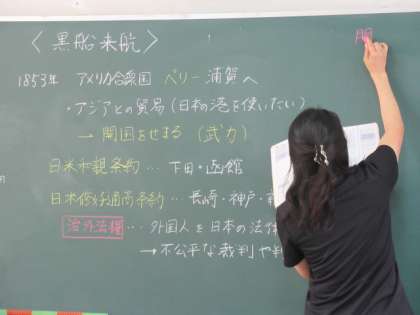 〈黒船来航〉
1853年 アメリカ合衆国 ペリー 浦賀へ
・アジアとの貿易(日本の港を使いたい)
→ 開国をせまる (武力)
日米和親条約 … 下田・函館
日米修好通商条約 … 長崎・神戸・
治外法権 … 外国人を日本の法
→ 不公平な裁判や